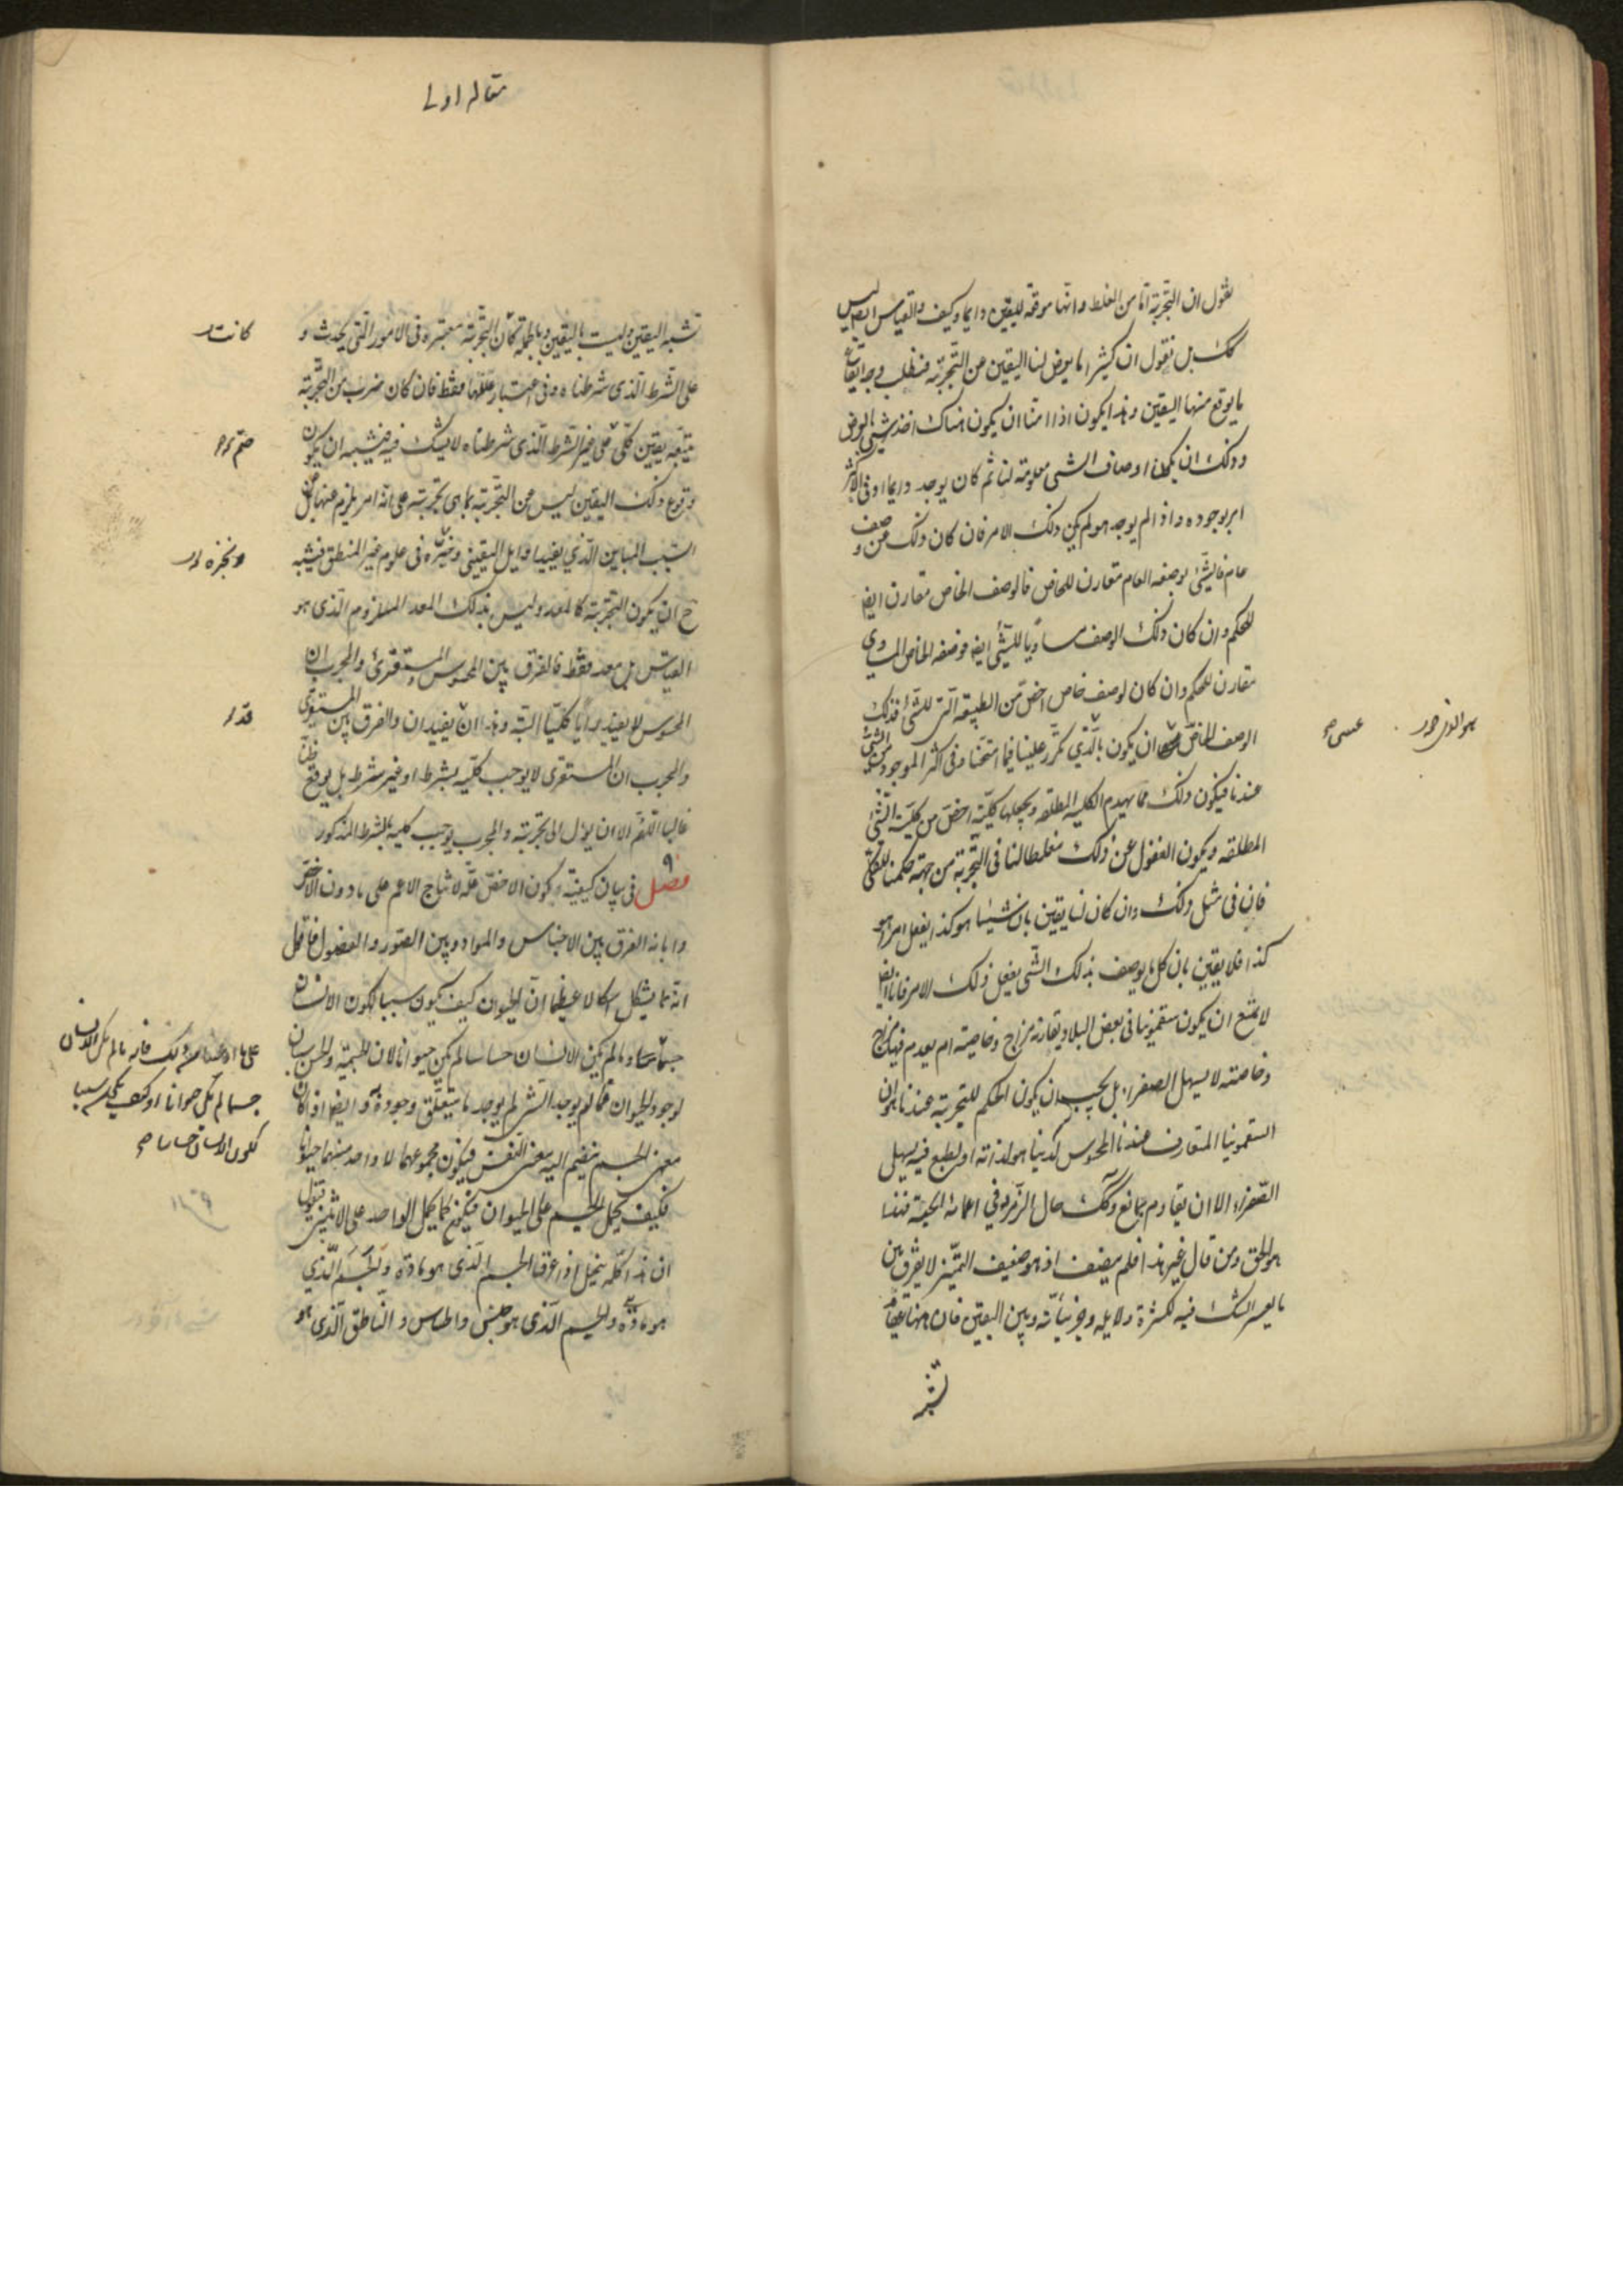 نقول ان التجربة امان من الغلط وانها موقعة لليقين دايما وكيف والقياس ايضا ليس
كك بل نقول ان كثيرا ما يعرض لنا اليقين عن التجربة فنطلب وجه ايقاع
ما يوقع منها اليقين وهذا يكون اذا امنا ان يكون هناك اخذ شيئ بالعرض
وذلك ان يكون اوصاف الشيئ معلومة لنا ثم كان يوجد دايما او فى الاكثر
امر بوجوده واذا لم يوجد هو لم يكن ذلك الامر فان كان ذلك عن وصف
عام فالشيئ بوصفه العام مقارن للخاص فالوصف الخاص مقارن ايضا
للحكم وان كان ذلك الوصف مساويا للشيئ ايضا فوصفه الخاص المساوى
مقارن للحكم وان كان لوصف خاص اخص من الطبيعة التى للشيئ فذلك
الوصف الخاص عسى ان يكون بالذى تكرر علينا فيما امتحنا وفى اكثر الموجود من الشيئ
عندنا فيكون ذلك مما يهدم الكلية المطلقة ويجعلها كلية اخص من كلية الشيئ
المطلقة ويكون الغفول عن ذلك مغلطا لنا فى التجربة من جهة حكمنا الكلى
فانا فى مثل ذلك وان كان لنا يقين بان شيئا هو كذا يفعل امرا هو
كذا فلا يقين بان كل ما يوصف بذلك الشيئ يفعل ذلك الامر فانا ايضا
لا نمنع ان يكون سقمونيا فى بعض البلاد يقارنه مزاج وخاصية او يعدم فيه مزاج
وخاصية لا يسهل الصفراء بل يجب ان يكون الحكم للتجربة عندنا هو ان
السقمونيا المتعارف عندنا المحسوس لدينا هو لذاته او لطبع فيه يسهل
الصفراء الا ان يقاوم بمانع وكك حال الزمرد فى اعمائه الحية فهذا
هو الحق ومن قال غير هذا فلم ينصف او هو ضعيف التمييز لا يفرق بين
ما يعسر الشك فيه لكثرة دلايله وجزئياته وبين اليقين فان ههنا عقايد
تشبه
عسى
مقاله اولى
تشبه اليقين وليست باليقين وبالجملة فان التجربة معتبره فى الامور التى يحدث و
على الشرط الذى شرطناه وفى اعتبار عللها فقط فان كان ضرب من التجربة
يتبعه يقين كلى على غير الشرط الذى شرطناه لا يشك فيه فيشبه ان يكون
وقوع ذلك اليقين ليس عن التجربة بما هى تجربة على انه امر يلزم عنها بل عن
السبب المباين الذى يفيد اوايل اليقين وخبره فى علوم غير المنطق فيشبه
ح ان يكون التجربة كالمعد وليس بذلك المعد الملزوم الذى هو
القياس بل معد فقط فالفرق بين المحسوس والمستقرئ والمجرب ان
المحسوس لا يفيد رايا كليا البتة وهذان يفيدان والفرق بين المستقرى
والمجرب ان المستقرى لا يوجب كلية بشرط او غير شرط بل يوقع ظنا
غالبا اللهم الا ان يؤل الى تجربة والمجرب يوجب كلية بالشرط المذكور
فصل فى بيان كيفية كون الاخص علة لانتاج الاعم على ما دون الاخص
وابانه الفرق بين الاجناس والمواد وبين الصور والفصول فاقول
انه مما يشكل اشكالا عظيما ان الحيوان كيف يكون سببا لكون الانسان
جسما وما لم يكن الانسان حساسا لم يكن حيوانا لان الجسمية والحس سببان
لوجود الحيوان فما لم يوجد الشيئ لم يوجد ما يتعلق وجوده به وايضا اذا كان
معنى الجسم ينضم اليه معنى النفس فيكون مجموعهما لا واحد منهما حيوانا
فكيف يحمل الجسم على الحيوان فيكون كما يحمل الواحد على الاثنين فنقول
ان هذا كله ينحل اذا عرفنا الجسم الذى هو مادة والجسم الذى
هو مادة والجسم الذى هو جنس والحساس والناطق الذى هو
كانت